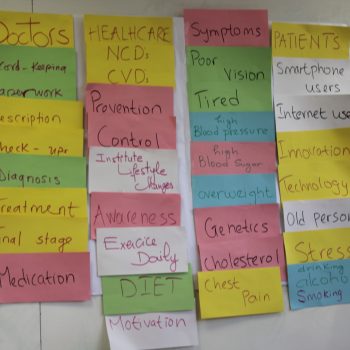 Doctors
Record-keeping
Paperwork
Prescription
Check-ups
Diagnosis
Treatment
Final stage
Medication
HEALTHCARE
NCDs
CVDs
Prevention
Control
Institute
Lifestyle
changes
Awareness
Exercice
Daily
DIET
Motivation
Symptoms
Poor
Vision
Tired
high
Blood pressure
high
Blood Sugar
overweight
Genetics
Cholesterol
Chest
Pain
PATIENTS
Smartphone
users
Internet use
Innovation
Technology
Old person
Stress
drinking
alcohol
Smoking